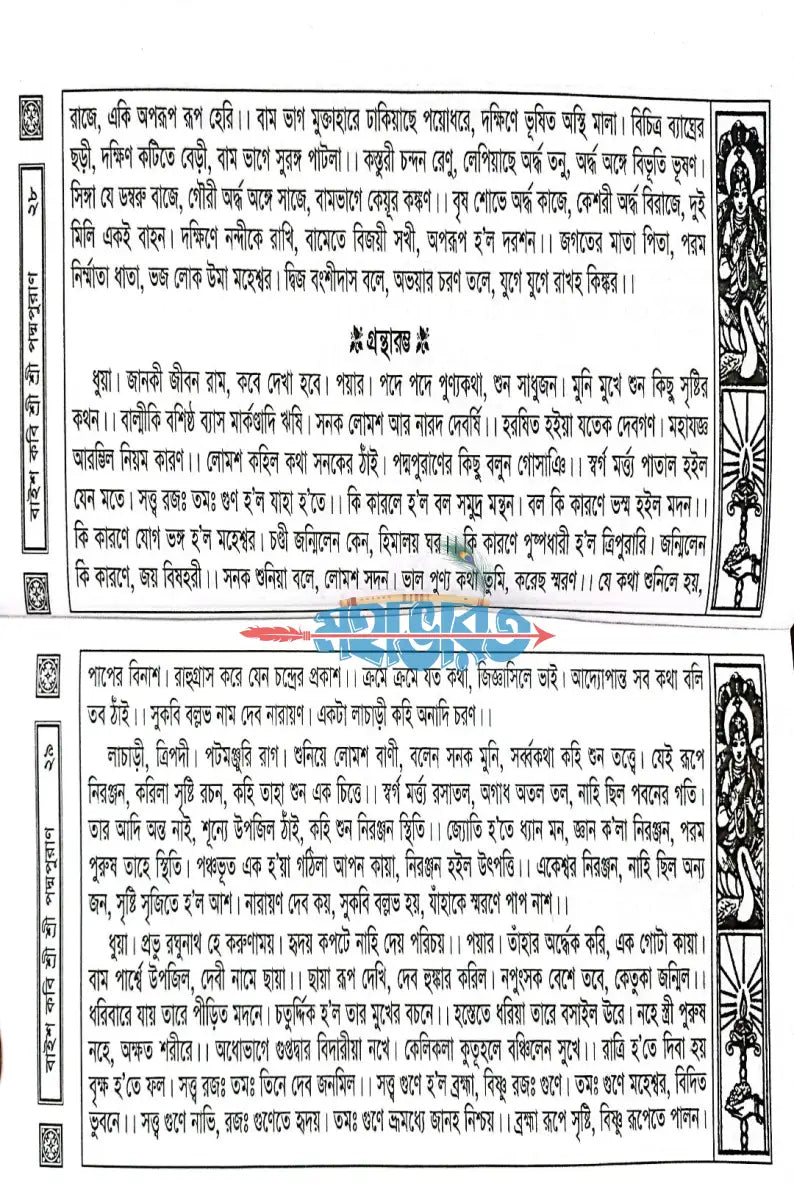 রাজে, একি অপরূপ রূপ হেরি।। বাম ভাগ মুক্তাহারে ঢাকিয়াছে পয়োধরে, দক্ষিণে ভূষিত অস্থি মালা। বিচিত্র ব্যাঘ্রের
ছড়ী, দক্ষিণ কটিতে বেড়ী, বাম ভাগে সুরঙ্গ পাটলা।। কস্তুরী চন্দন রেণু, লেপিয়াছে অর্দ্ধ তনু, অর্দ্ধ অঙ্গে বিভূতি ভূষণ।
সিঙ্গা যে ডম্বরু বাজে, গৌরী অর্দ্ধ অঙ্গে সাজে, বামভাগে কেয়ূর কঙ্কণ।। বৃষ শোভে অর্দ্ধ কাজে, কেশরী অর্দ্ধ বিরাজে, দুই
মিলি একই বাহন। দক্ষিণে নন্দীকে রাখি, বামেতে বিজয়ী সখী, অপরূপ হ'ল দরশন।। জগতের মাতা পিতা, পরম
নির্ম্মাতা ধাতা, ভজ লোক উমা মহেশ্বর। দ্বিজ বংশীদাস বলে, অভয়ার চরণ তলে, যুগে যুগে রাখহ কিঙ্কর।।
গ্রন্থারম্ভ
ধুয়া। জানকী জীবন রাম, কবে দেখা হবে। পয়ার। পদে পদে পুণ্যকথা, শুন সাধুজন। মুনি মুখে শুন কিছু সৃষ্টির
কথন।। বাল্মীকি বশিষ্ঠ ব্যাস মার্কণ্ডাদি ঋষি। সনক লোমশ আর নারদ দেবর্ষি।। হরষিত হইয়া যতেক দেবগণ। মহাযজ্ঞ
আরম্ভিল নিয়ম কারণ।। লোমশ কহিল কথা সনকের ঠাঁই। পদ্মপুরাণের কিছু বলুন গোসাঞি।। স্বর্গ মর্ত্ত্য পাতাল হইল
যেন মতে। সত্ত্ব রজঃ তমঃ গুণ হ'ল যাহা হ'তে।। কি কারলে হ'ল বল সমুদ্র মন্থন। বল কি কারণে ভস্ম হইল মদন।।
কি কারণে যোগ ভঙ্গ হ'ল মহেশ্বর। চণ্ডী জন্মিলেন কেন, হিমালয় ঘর।। কি কারণে পুষ্পধারী হ'ল ত্রিপুরারি। জন্মিলেন
কি কারণে, জয় বিষহরী।। সনক শুনিয়া বলে, লোমশ সদন। ভাল পুণ্য কথা তুমি, করেছ স্মরণ।। যে কথা শুনিলে হয়,
২৮
বাইশ কবি শ্রী শ্রী পদ্মপুরাণ
মহাভারত
পাপের বিনাশ। রাহুগ্রাস করে যেন চন্দ্রের প্রকাশ।। ক্রমে ক্রমে যত কথা, জিজ্ঞাসিলে ভাই। আদ্যোপান্ত সব কথা বলি
তব ঠাঁই।। সুকবি বল্লভ নাম দেব নারায়ণ। একটা লাচাড়ী কহি অনাদি চরণ।।
লাচাড়ী, ত্রিপদী। পটমঞ্জুরি রাগ। শুনিয়ে লোমশ বাণী, বলেন সনক মুনি, সর্ব্বকথা কহি শুন তত্ত্বে। যেই রূপে
নিরঞ্জন, করিলা সৃষ্টি রচন, কহি তাহা শুন এক চিত্তে।। স্বর্গ মর্ত্ত্য রসাতল, অগাধ অতল তল, নাহি ছিল পবনের গতি।
তার আদি অন্ত নাই, শূন্যে উপজিল ঠাঁই, কহি শুন নিরঞ্জন স্থিতি।। জ্যোতি হ'তে ধ্যান মন, জ্ঞান ক'লা নিরঞ্জন, পরম
পুরুষ তাহে স্থিতি। পঞ্চভূত এক হ'য়া গঠিলা আপন কায়া, নিরঞ্জন হইল উৎপত্তি।। একেশ্বর নিরঞ্জন, নাহি ছিল অন্য
জন, সৃষ্টি সৃজিতে হ'ল আশ। নারায়ণ দেব কয়, সুকবি বল্লভ হয়, যাঁহাকে স্মরণে পাপ নাশ।।
ধুয়া। প্রভু রঘুনাথ হে করুণাময়। হৃদয় কপটে নাহি দেয় পরিচয়।। পয়ার। তাঁহার অর্দ্ধেক করি, এক গোটা কায়া।
বাম পার্শ্বে উপজিল, দেবী নামে ছায়া।। ছায়া রূপ দেখি, দেব হুঙ্কার করিল। নপুংসক বেশে তবে, কেতুকা জন্মিল।।
ধরিবারে যায় তারে পীড়িত মদনে। চতুর্দ্দিক হ'ল তার মুখের বচনে।। হস্তেতে ধরিয়া তারে বসাইল ঊরে। নহে স্ত্রী পুরুষ
নহে, অক্ষত শরীরে।। অধোভাগে গুপ্তদ্বার বিদারীয়া নখে। কেলিকলা কুতূহলে বঞ্চিলেন সুখে।। রাত্রি হ'তে দিবা হয়
বৃক্ষ হ'তে ফল। সত্ত্ব রজঃ তমঃ তিনে দেব জনমিল।। সত্ত্ব গুণে হ'ল ব্রহ্মা, বিষ্ণু রজঃ গুণে। তমঃ গুণে মহেশ্বর, বিদিত
ভুবনে।। সত্ত্ব গুণে নাভি, রজঃ গুণেতে হৃদয়। তমঃ গুণে ভ্রূমধ্যে জানহ নিশ্চয়।। ব্রহ্মা রূপে সৃষ্টি, বিষ্ণু রূপেতে পালন।
২৯
বাইশ কবি শ্রী শ্রী পদ্মপুরাণ